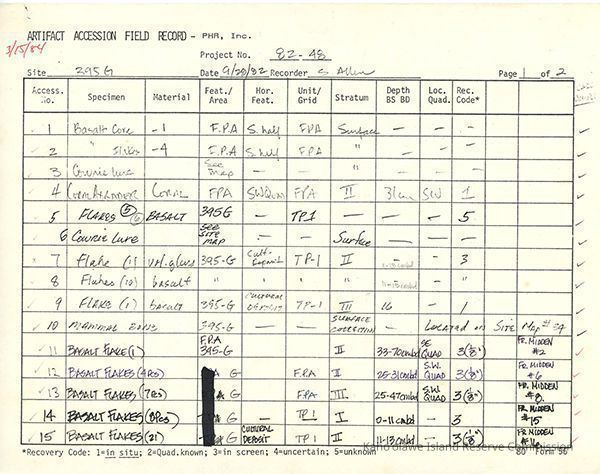 ARTIFACT ACCESSION FIELD RECORD - PHR, Inc.
3/15/84
Project No. 82-48
Site 395G Date 9/28/82 Recorder S Allen Page 1 of 2
Access. No. Specimen Material Feat./Area Hor. Feat. Unit/Grid Stratum Depth BS BD Loc. Quad. Rec. Code*
1 Basalt Core -1 F.P.A S. half FPA Surface — — -
2 " flakes -4 F.P.A S. half FPA " — — -
3 Cowrie lure See map — — " — — -
4 Coral Coral FPA FPA II SW 1
5 Flakes (5) Basalt 395G — TP.1 — — — 5
6 Cowrie Lure See Site Map Surface — —
7 Flake (1) vol. glass 395-G Cult. Deposit TP-1 II — 3
8 Flakes (10) basalt " " " "
9 Flake (1) basalt 395-G Cultural Deposit TP-1 III 16 - 1
10 Mammal Bone 395-G — — Surface Collection Located on Site Map # 34
11 Basalt Flake (1) F.P.A 395-G II 33-70cmbd SE Quad 3(1/8") Fr. Midden #2
12 Basalt Flakes (4pcs) G F.P.A II 25-31cmbd S.W. Quad 3(1/8") Fr. Midden #6
13 Basalt Flakes (7pcs) G F.P.A III 25-47cmbd S.W. Quad 3(1/8") Fr. Midden #8
14 Basalt Flakes (8pcs) G — TP 1 I 0-11cmbd — 3(1/8") Fr. Midden #15
15 Basalt Flakes (21) G Cultural Deposit TP 1 II 11-13cmbd — 3(1/8") Fr. Midden
*Recovery Code: 1=in situ; 2=Quad.known; 3=in screen; 4=uncertain; 5=unknown
Kaho'olawe Island Reserve Commission
80 Form 56